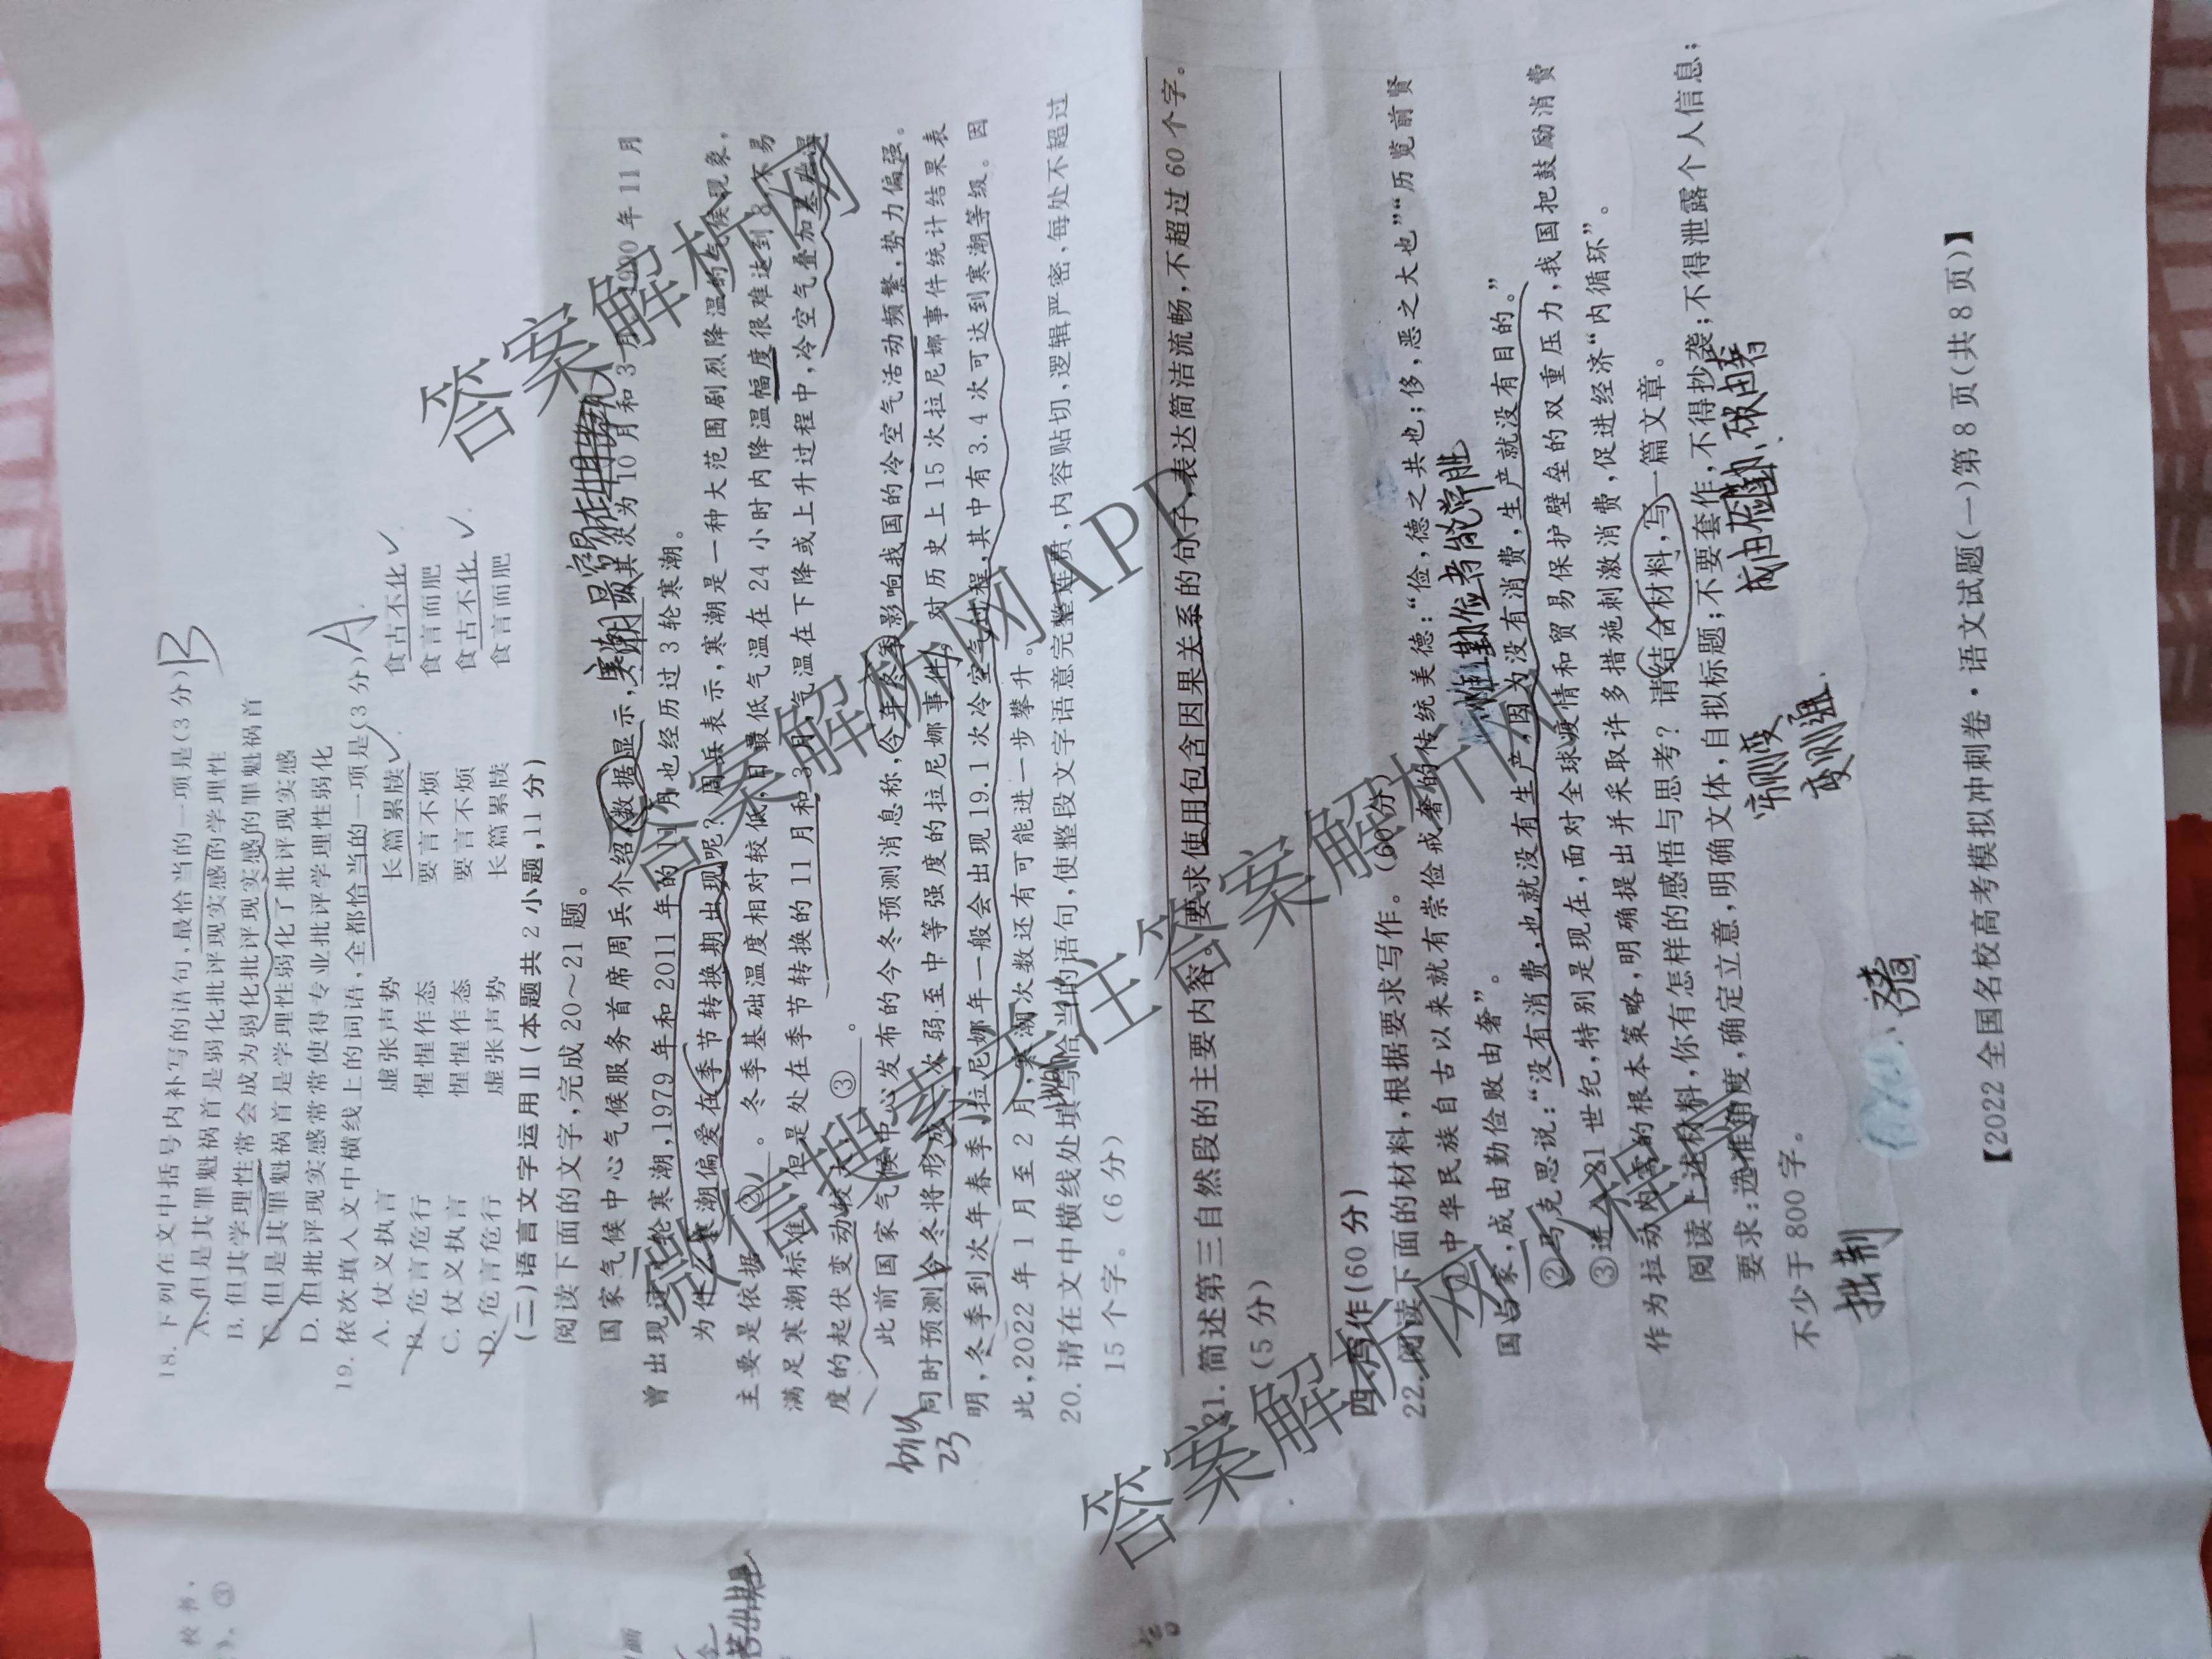 18. 下列在文中括号内补写的语句,最恰当的一项是(3分) B
A. 但是其罪魁祸首是弱化批评现实感的学理性
B. 但其学理性常会成为弱化批评现实感的罪魁祸首
C. 但是其罪魁祸首是学理性弱化了批评现实感
D. 但批评现实感常常使得专业批评学理性弱化
19. 依次填入文中横线上的词语,全都恰当的一项是(3分) A
A. 仗义执言 虚张声势 长篇累牍 食古不化
B. 危言危行 惺惺作态 要言不烦 食言而肥
C. 仗义执言 惺惺作态 要言不烦 食古不化
D. 危言危行 虚张声势 长篇累牍 食言而肥
(二)语言文字运用Ⅱ(本题共2小题,11分)
阅读下面的文字,完成20~21题。
国家气候中心气候服务首席周兵介绍,数据显示, 寒潮最 其次为10月和3月。1990年11月
曾出现过 轮寒潮,1979年和2011年的11月也经历过3轮寒潮。
为什么寒潮偏爱在季节转换期出现呢?周兵表示,寒潮是一种大范围剧烈降温的气候现象,
主要是依据 ② 。冬季基础温度相对较低,日最低气温在24小时内降温幅度很难达到8 不易
满足寒潮标准。但是处在季节转换的11月和3月,气温在下降或上升过程中,冷空气叠加基础温
度的起伏变动较大, ③ 。
此前国家气候中心发布的今冬预测消息称,今年冬季影响我国的冷空气活动频繁,势力偏强。
同时预测今冬将形成一次弱至中等强度的拉尼娜事件,对历史上15次拉尼娜事件统计结果表
所以
明,冬季到次年春季拉尼娜年一般会出现19.1次冷空气过程,其中有3.4次可达到寒潮等级。因
此,2022年1月至2月,寒潮次数还有可能进一步攀升。
20. 请在文中横线处填写恰当的语句,使整段文字语意完整连贯,内容贴切,逻辑严密,每处不超过
15个字。(6分)
21. 简述第三自然段的主要内容。要求使用包含因果关系的句子,表达简洁流畅,不超过60个字。
(5分)
四、写作(60分)
22. 阅读下面的材料,根据要求写作。(60分)
①中华民族自古以来就有崇俭戒奢的传统美德:“俭,德之共也;侈,恶之大也”“历览前贤
国与家,成由勤俭败由奢”。
惟勤俭者能常胜
②马克思说:“没有消费,也就没有生产,因为没有消费,生产就没有目的。”
③进入21世纪,特别是现在,面对全球疫情和贸易保护壁垒的双重压力,我国把鼓励消费
作为拉动内需的根本策略,明确提出并采取许多措施刺激消费,促进经济“内循环”。
阅读上述材料,你有怎样的感悟与思考?请结合材料,写一篇文章。
要求:选准角度,确定立意,明确文体,自拟标题;不要套作,不得抄袭;不得泄露个人信息;
不少于800字。
穷则变
变则通
【2022全国名校高考模拟冲刺卷·语文试题(一)第8页(共8页)】
答案解析网
答案解析网APP
微信搜索关注答案解析网
答案解析网